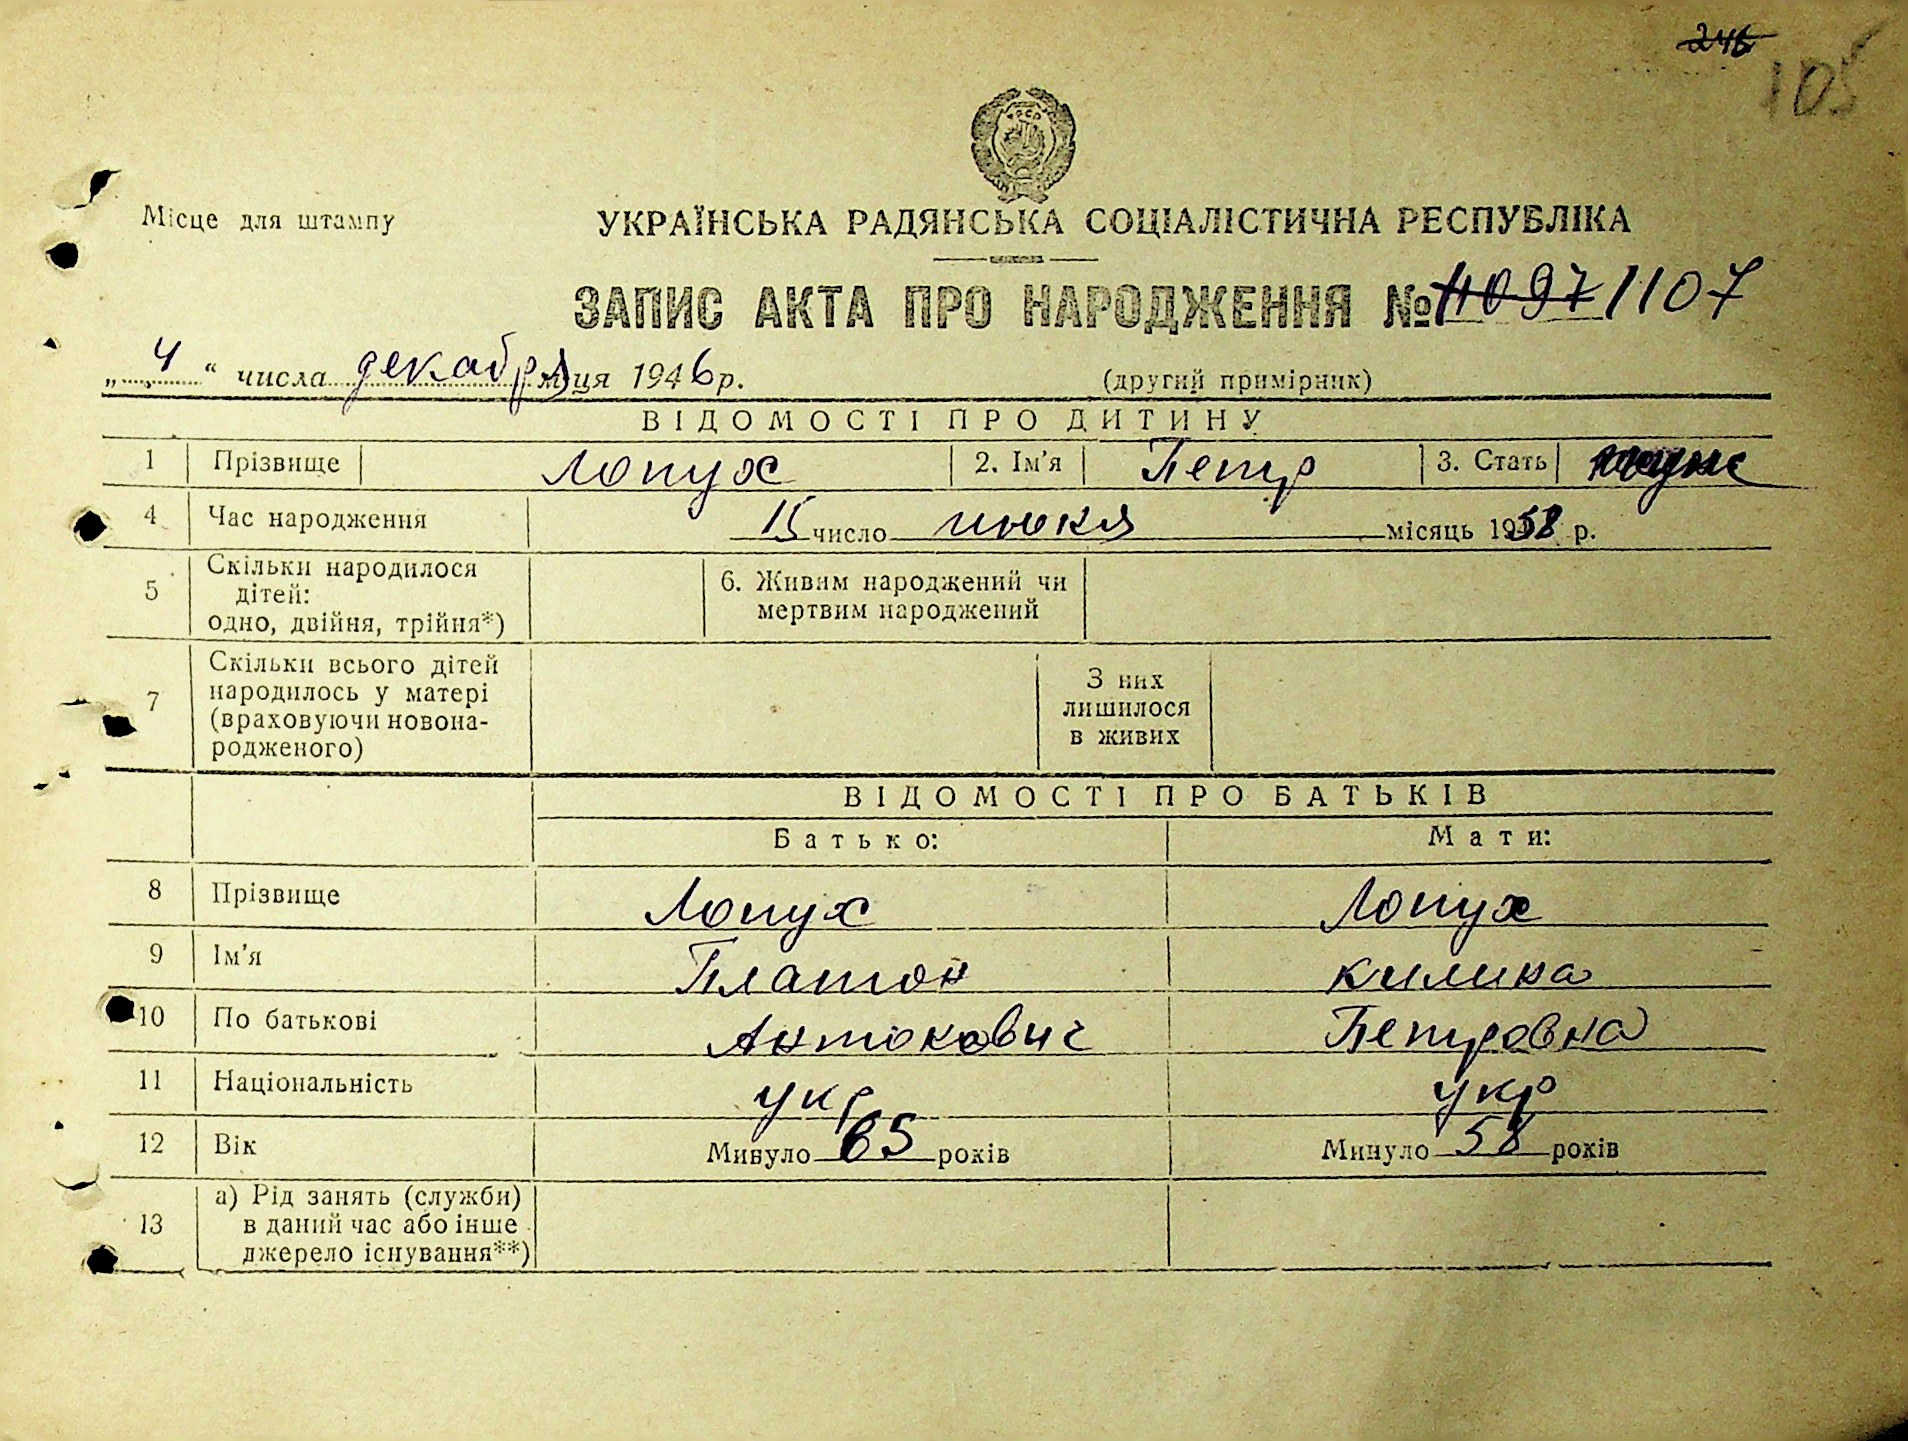 246
105
Місце для штампу
УКРАЇНСЬКА РАДЯНСЬКА СОЦІАЛІСТИЧНА РЕСПУБЛІКА
ЗАПИС АКТА ПРО НАРОДЖЕННЯ № 11097 1107
„4“ числа декабря м-ця 1946 р. (другий примірник)
ВІДОМОСТІ ПРО ДИТИНУ
1 Прізвище Лопух 2. Ім'я Петр 3. Стать
4 Час народження 15 число июля місяць 19 р.
5 Скільки народилося дітей: одно, двійня, трійня*) 6. Живим народжений чи мертвим народжений
7 Скільки всього дітей народилось у матері (враховуючи новонародженого) З них лишилося в живих
ВІДОМОСТІ ПРО БАТЬКІВ
Батько: Мати:
8 Прізвище Лопух Лопух
9 Ім'я Платон килина
10 По батькові Антонович Петровна
11 Національність укр укр
12 Вік Минуло 65 років Минуло 58 років
13 а) Рід занять (служби) в даний час або інше джерело існування**)